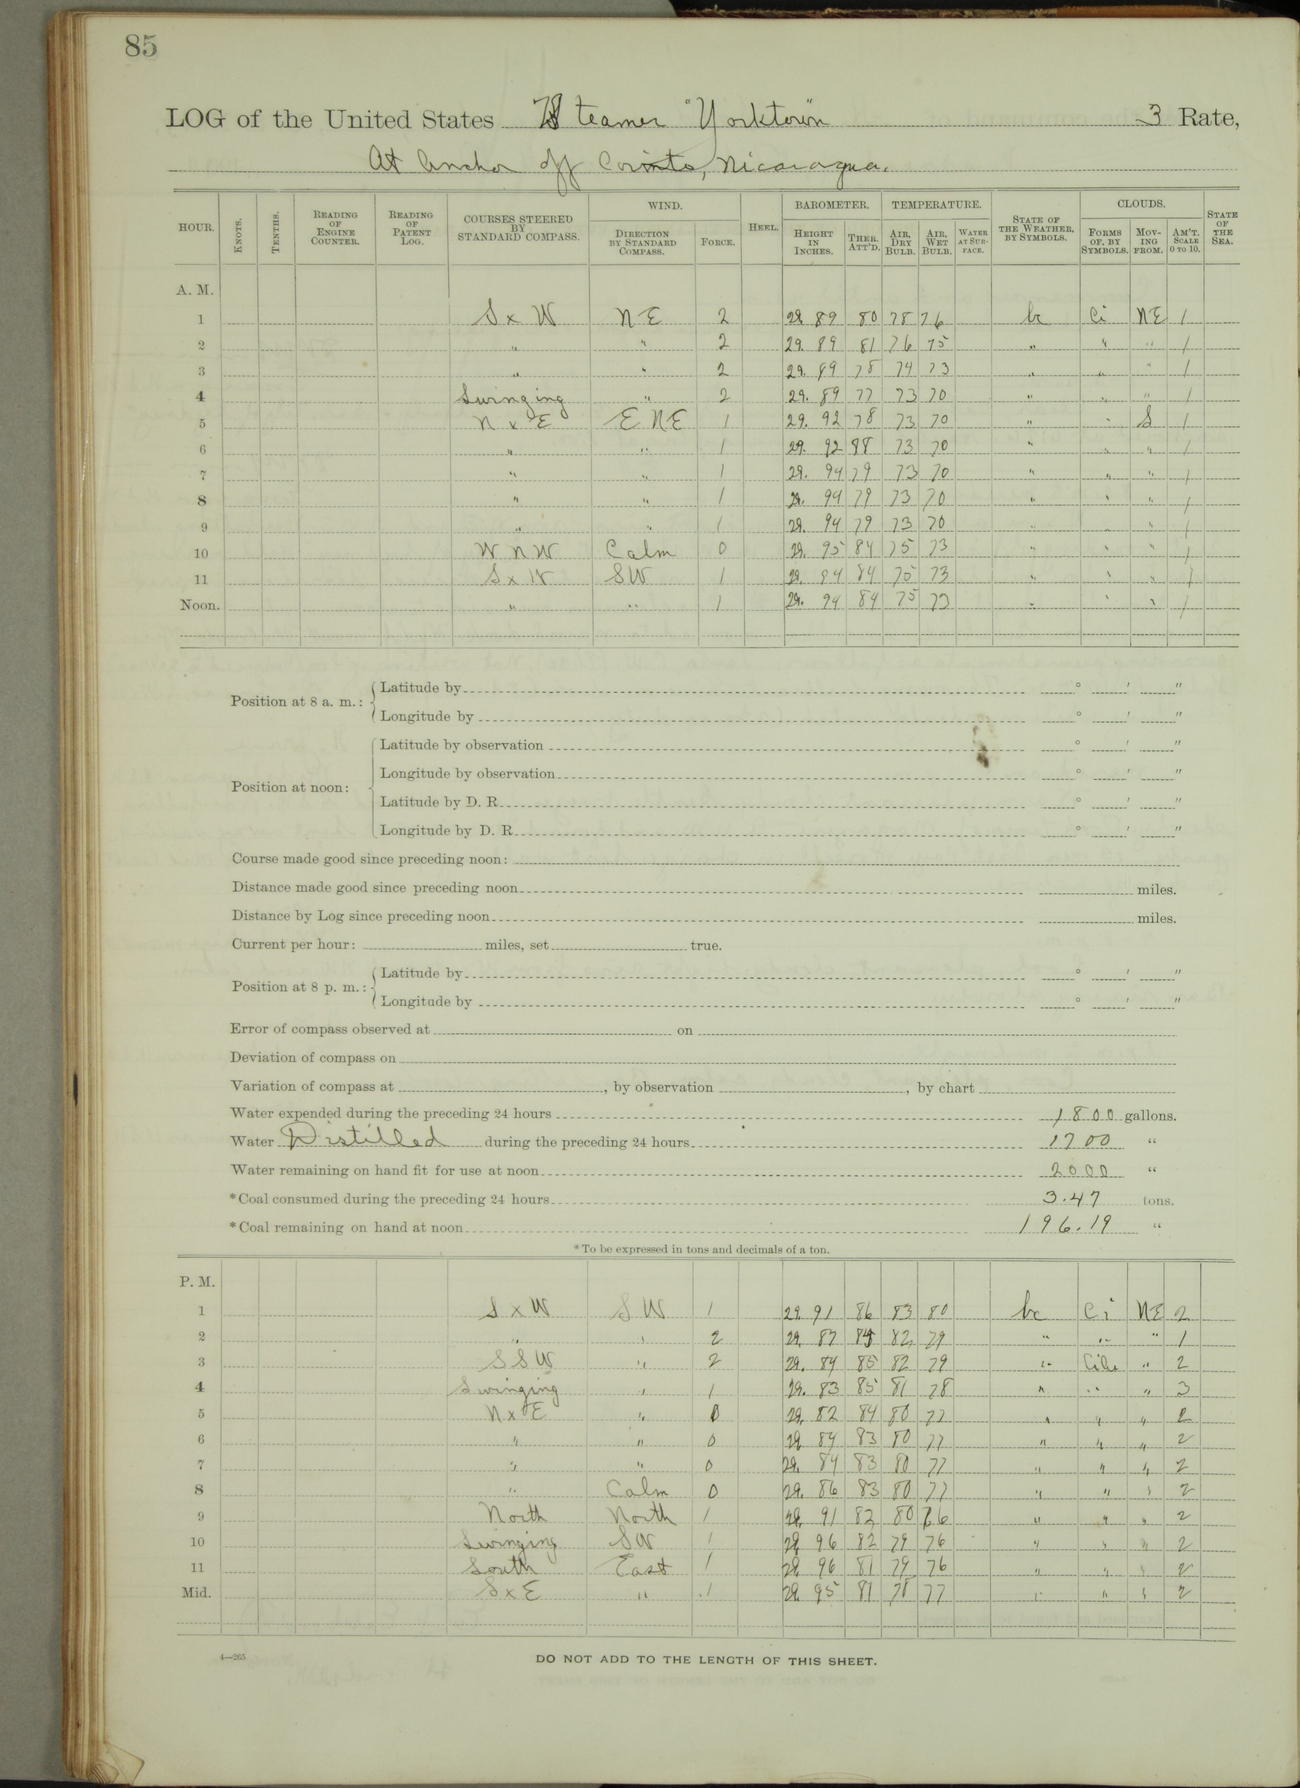 85
LOG of the United States Steamer "Yorktown" 3 Rate,
At Anchor off Corinto, Nicaragua.
HOUR. KNOTS. TENTHS. READING OF ENGINE COUNTER. READING OF PATENT LOG. COURSES STEERED BY STANDARD COMPASS. WIND. DIRECTION BY STANDARD COMPASS. FORCE. HEEL. BAROMETER. HEIGHT IN INCHES. THER. ATT'D. TEMPERATURE. AIR, DRY BULB. AIR, WET BULB. WATER AT SURFACE. STATE OF THE WEATHER, BY SYMBOLS. CLOUDS. FORMS OF, BY SYMBOLS. MOVING FROM. AM'T. SCALE 0 TO 10. STATE OF THE SEA.
A. M.
1 S x W NE 2 29 89 80 78 76 bc Ci NE 1
2 " " 2 29. 89 81 76 75 " " " 1
3 " " 2 29. 89 78 74 73 " " " 1
4 Swinging " 2 29. 89 77 73 70 " " " 1
5 N x E ENE 1 29. 92 78 73 70 " " S 1
6 " " 1 29. 92 88 73 70 " " " 1
7 " " 1 29. 94 79 73 70 " " " 1
8 " " 1 29. 94 79 73 70 " " " 1
9 " " 1 29. 94 79 73 70 " " " 1
10 W N W Calm 0 29. 95 84 75 73 " " " 1
11 S x W SW 1 29. 94 84 75 73 " " " 1
Noon. " " 1 29. 94 84 75 73 " " " 1
Position at 8 a. m.: Latitude by ° ′ ″
Longitude by ° ′ ″
Position at noon: Latitude by observation ° ′ ″
Longitude by observation ° ′ ″
Latitude by D. R. ° ′ ″
Longitude by D. R. ° ′ ″
Course made good since preceding noon:
Distance made good since preceding noon miles.
Distance by Log since preceding noon miles.
Current per hour: miles, set true.
Position at 8 p. m.: Latitude by ° ′ ″
Longitude by ° ′ ″
Error of compass observed at on
Deviation of compass on
Variation of compass at , by observation , by chart
Water expended during the preceding 24 hours 1800 gallons.
Water Distilled during the preceding 24 hours 1700 "
Water remaining on hand fit for use at noon 2000 "
*Coal consumed during the preceding 24 hours 3.47 tons.
*Coal remaining on hand at noon 196.19 "
*To be expressed in tons and decimals of a ton.
P. M.
1 S x W SW 1 29. 91 86 83 80 bc Ci NE 2
2 " " 2 29. 87 84 82 79 " " " 1
3 SSW " 2 29. 84 85 82 79 " " 2
4 Swinging " 1 29. 83 85 81 78 " " " 3
5 N x E " 0 29. 82 84 80 77 " " " 2
6 " " 0 29 84 83 80 77 " " " 2
7 " " 0 29. 84 83 80 77 " " " 2
8 " Calm 0 29. 86 83 80 77 " " " 2
9 North North 1 29. 91 82 80 76 " " " 2
10 Swinging SW 1 29. 96 82 79 76 " " " 2
11 South East 1 29. 96 81 79 76 " " " 2
Mid. S x E " 1 29. 95 81 78 77 " " " 2
4—265
DO NOT ADD TO THE LENGTH OF THIS SHEET.